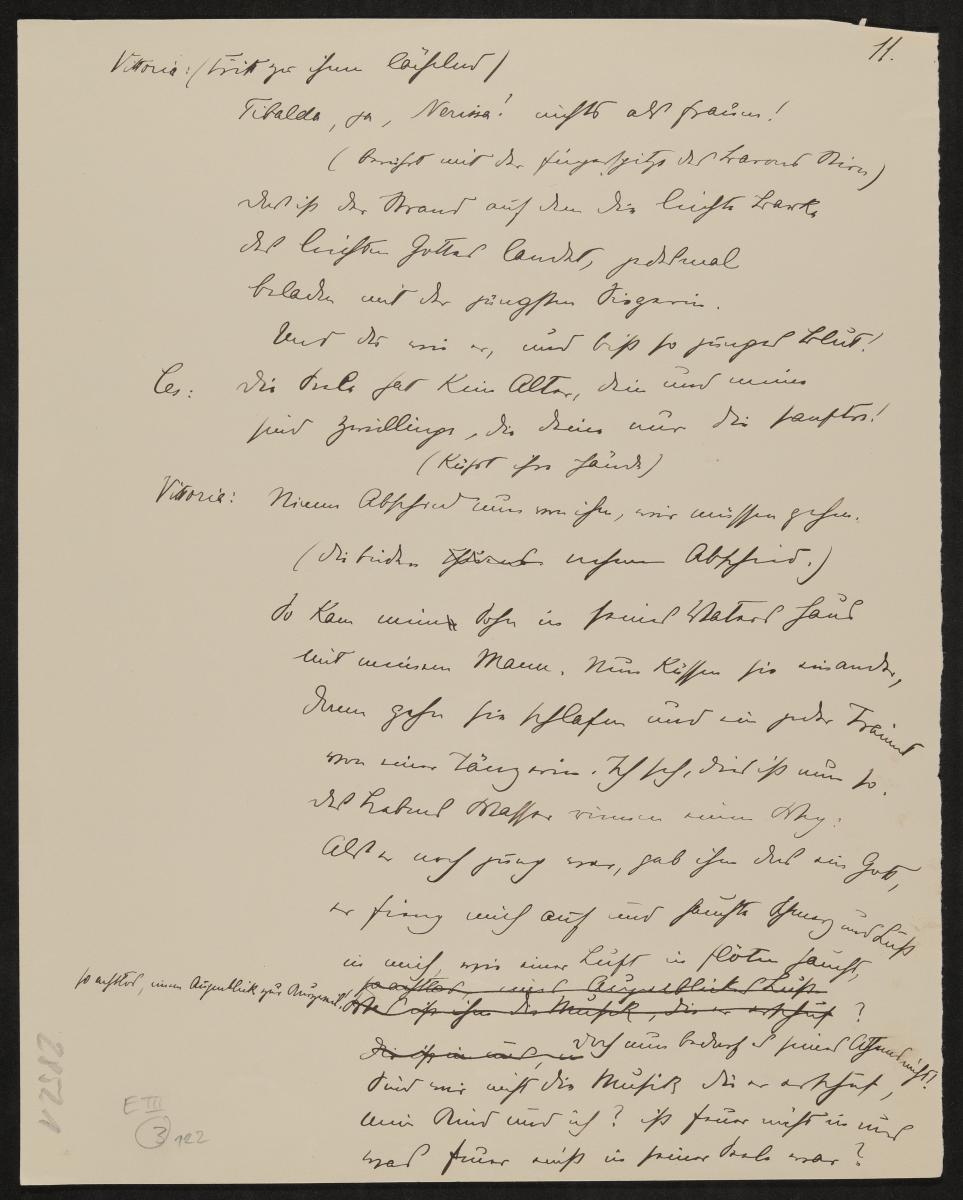 11.
Vittoria: (tritt zu ihm lächelnd)
Tibalda, ja, Nerissa! nichts als Frauen!
(berührt mit der Fingerspitze des Barons Stirn)
das ist der Strand auf dem die leichte Barke
des leichten Gottes landet, jedesmal
beladen mit der jüngsten Siegerin.
Und du wie er, und bist so junges Blut!
Ces: Die Seele hat kein Alter, dein und meine
sind Zwillinge, die deine nur die sanftre!
(küsst ihre Hände)
Vittoria: Nimm Abschied nun von ihm, wir müssen gehn.
(die beiden nehmen Abschied.)
So kam mein Sohn in seines Vaters Haus
mit meinem Mann. Nun küssen sie einander,
dann gehn sie schlafen und ein jeder träumt
von einer Tänzerin. Ich seh, dies ist nun so.
des Lebens Wasser rinnen einen Weg:
Als er noch jung war, gab ihm das ein Gott,
er fieng mich auf und hauchte Schmerz und Lust
in mich, wie einer Luft in Flöten haucht,
so achtlos, einen Augenblick zur
achtlos, eines Augenblickes Lust
ist ihm die Musik, die er erschuf?
doch nun bedarf es seines Athems nicht!
Sind wir nicht die Musik die er erschuf,
mein Kind und ich? ist Feuer nicht in uns
was Feuer einst in seiner Seele war?
E III
3 122
28521